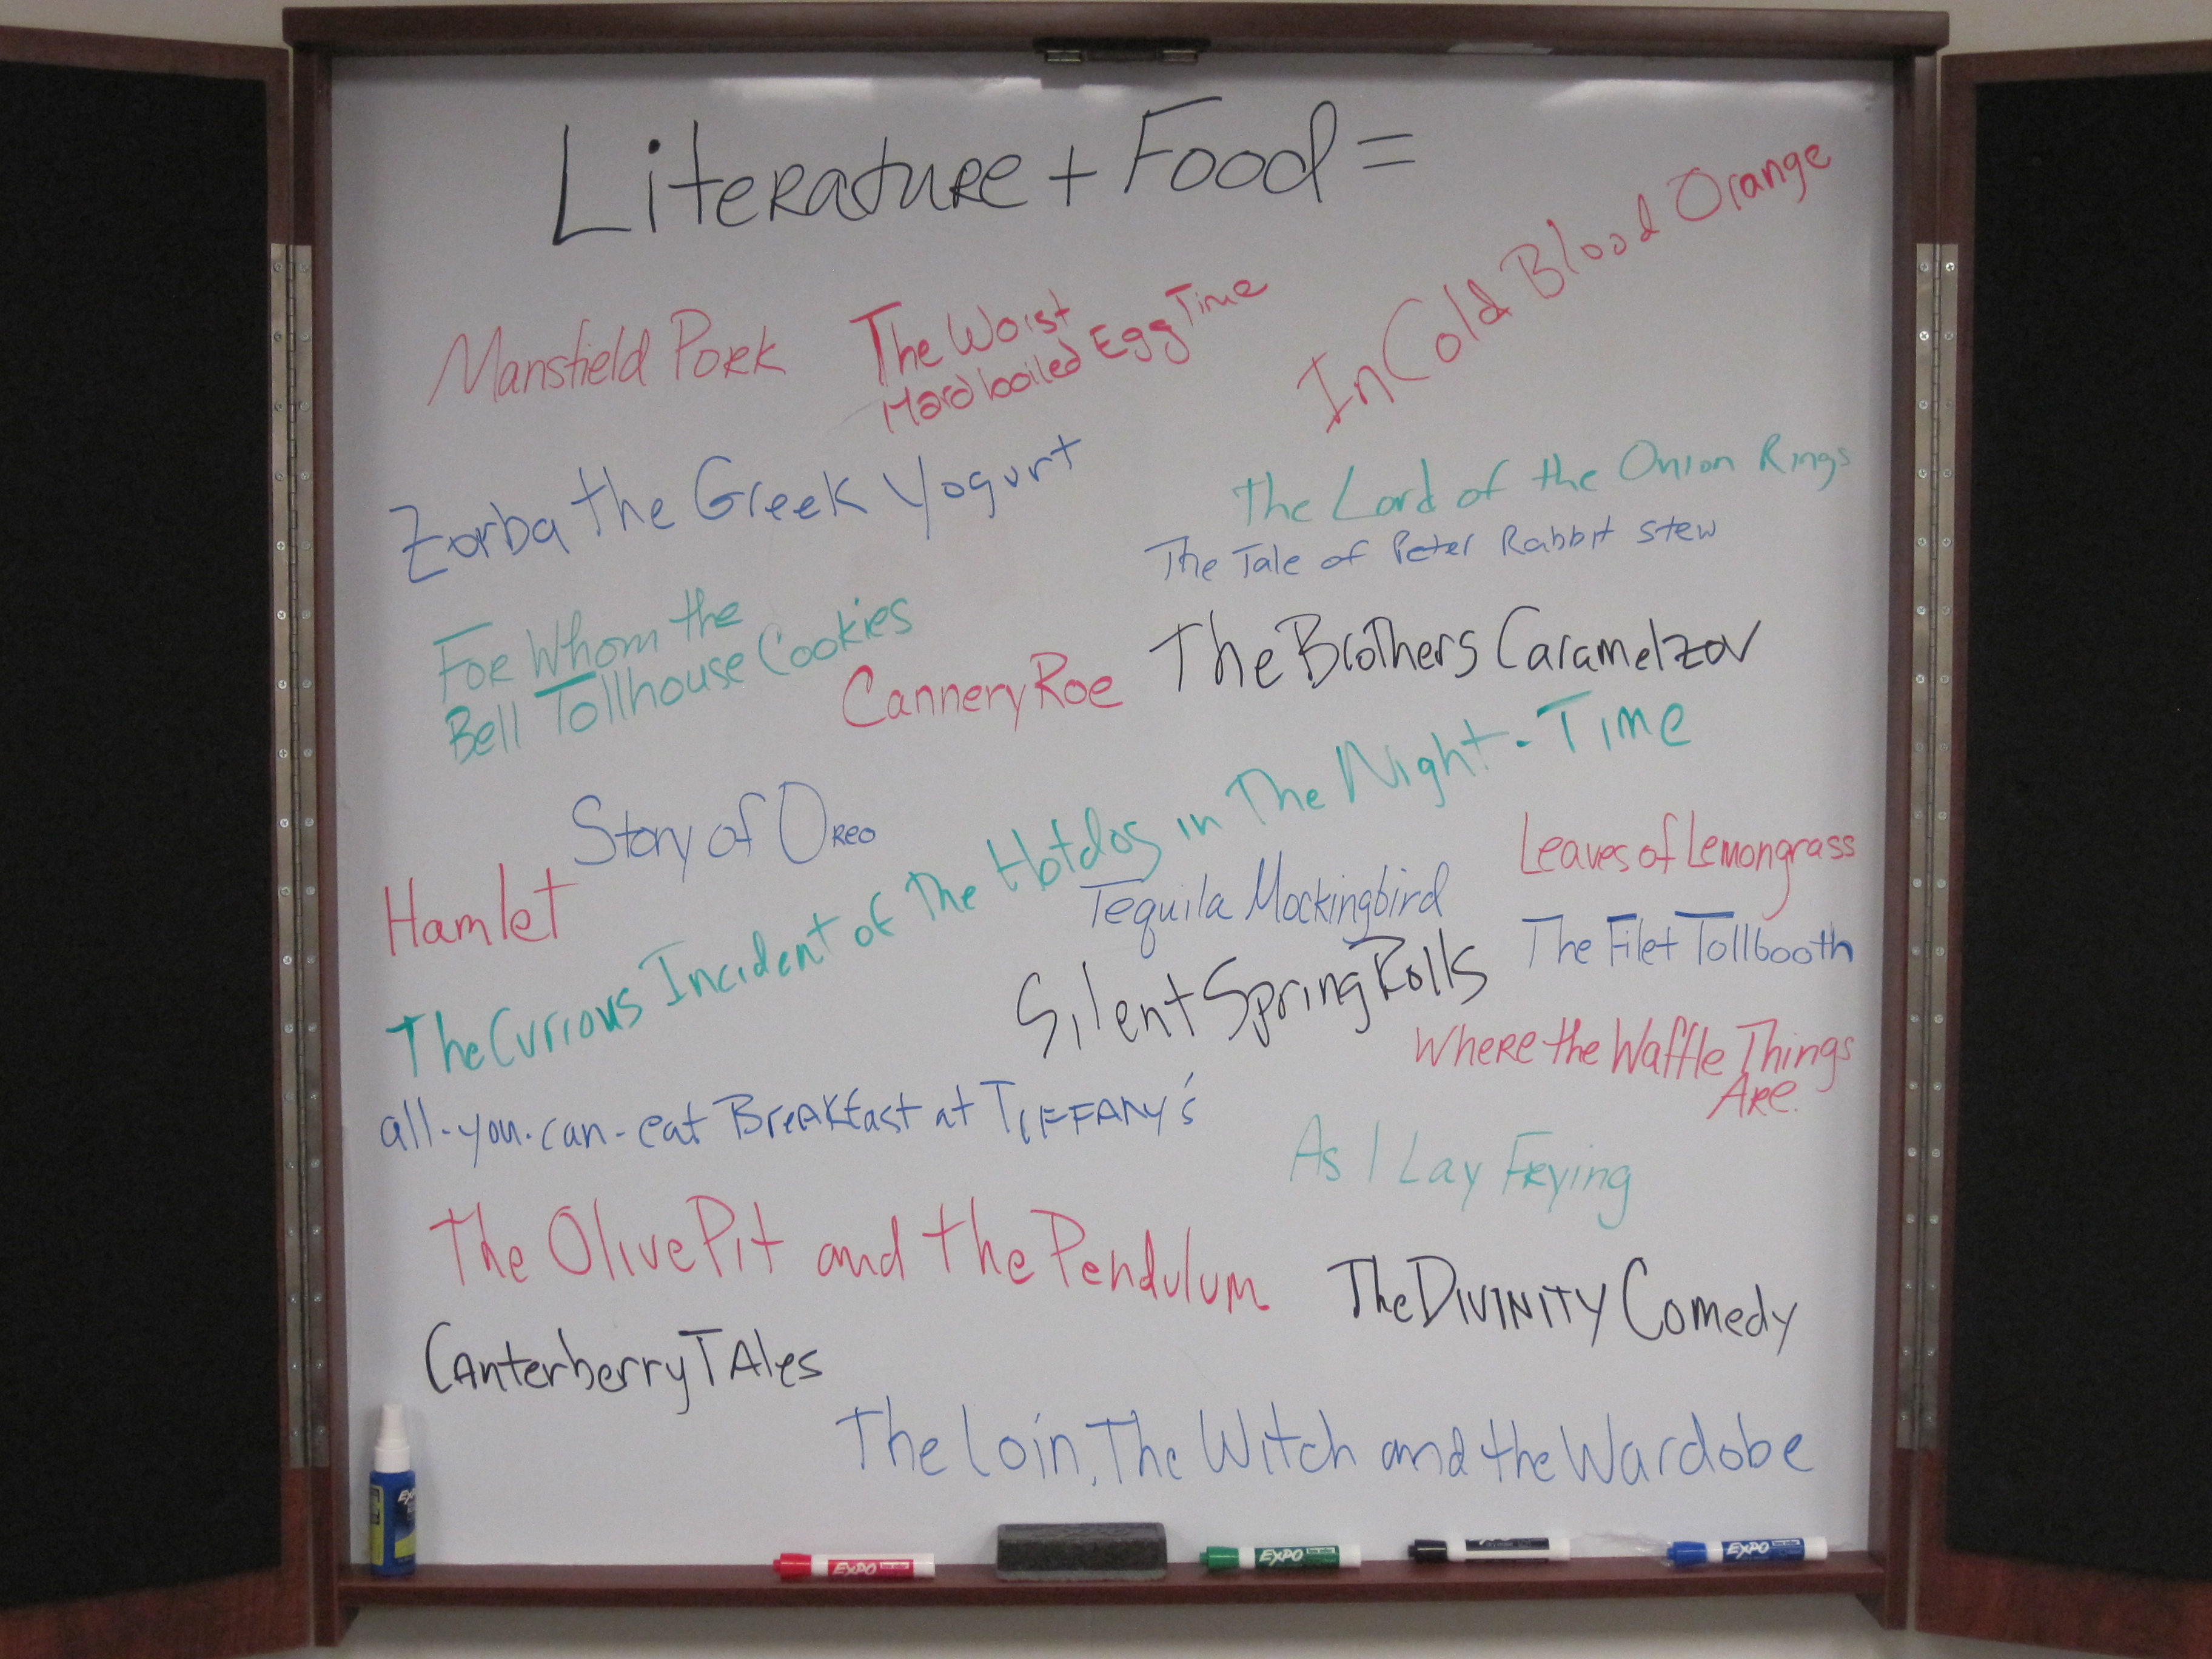 Literature + Food =
In Cold Blood Orange
Mansfield Pork
The Worst
Hardboiled Egg Time
Zorba the Greek Yogurt
The Lord of the Onion Rings
The Tale of Peter Rabbit Stew
For Whom the
Bell Tollhouse Cookies
Cannery Roe
The Brothers Caramelzov
Story of Oreo
Hamlet
The Curious Incident of The Hotdog in The Night-Time
Leaves of Lemongrass
Tequila Mockingbird
The Filet Tollbooth
Silent Spring Rolls
Where the Waffle Things
Are.
all-you-can-eat Breakfast at TIFFANY's
As I Lay Frying
The Olive Pit and the Pendulum
The DIVINITY Comedy
Canterberry TAles
The Loin, The Witch and the Wardobe
EXPO
EXPO
EXPO
EXPO